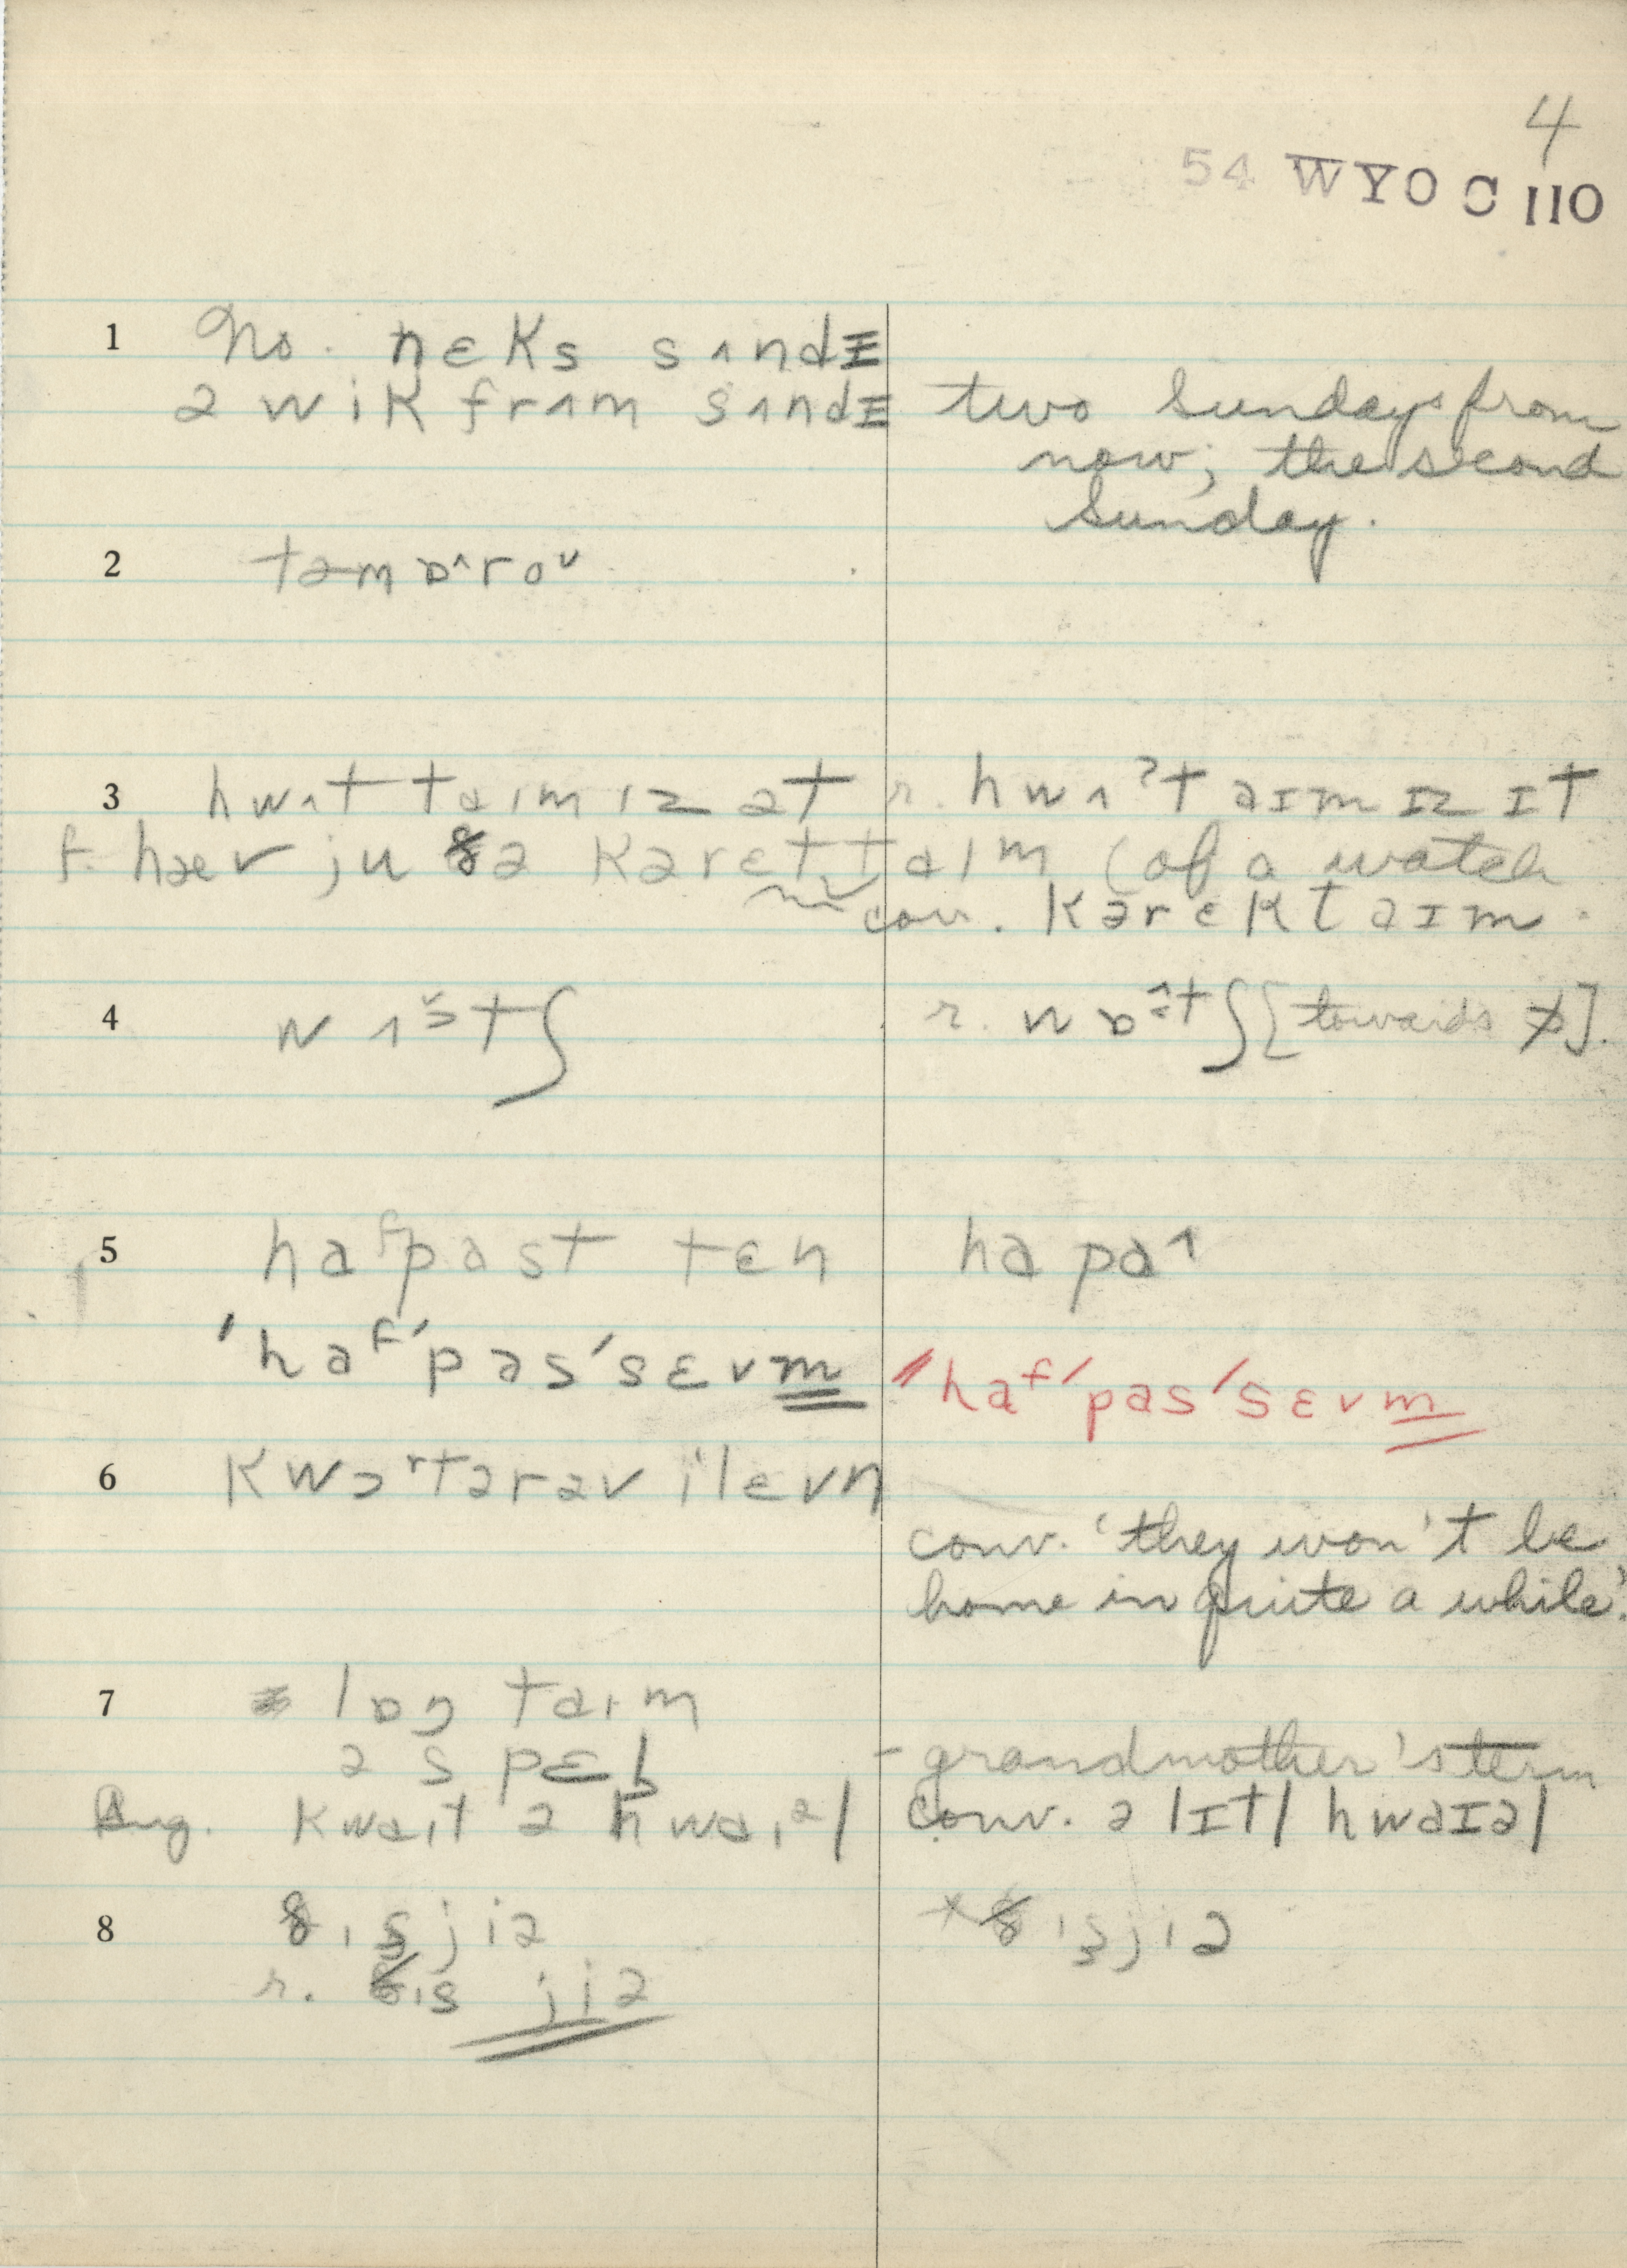 4
54 WYO C 110
1 No. nɛks sʌndɪ
ə wik frʌm sʌndɪ two Sundays from
now; the second
Sunday.
2 təmɒ^roᵛ
3 hwʌt taɪm ɪz ət r. hwʌˀt aɪm ɪz ɪt
f. hæv ju ðə kərɛt taɪm (of a watch
conv. kərɛktaɪm.
4 wʌɔtʃ r. wɒtʃ [towards ɒ].
5 haᶠpast tɛn ha pa^
ˈhaᶠˈpasˈsɛvm ˈhaᶠˈpasˈsɛvm
6 kwɔʳtərəv iˈlɛvn
conv. 'they won't be
home in quite a while'.
7 lɒŋ taɪm
ə spɛl - grandmother's term
Aug. kwaɪt ə hwaɪᵊl conv. ə lɪtl hwaɪəl
8 ðɪʂjiə *ðɪʂjiə
r. ðɪs jiə